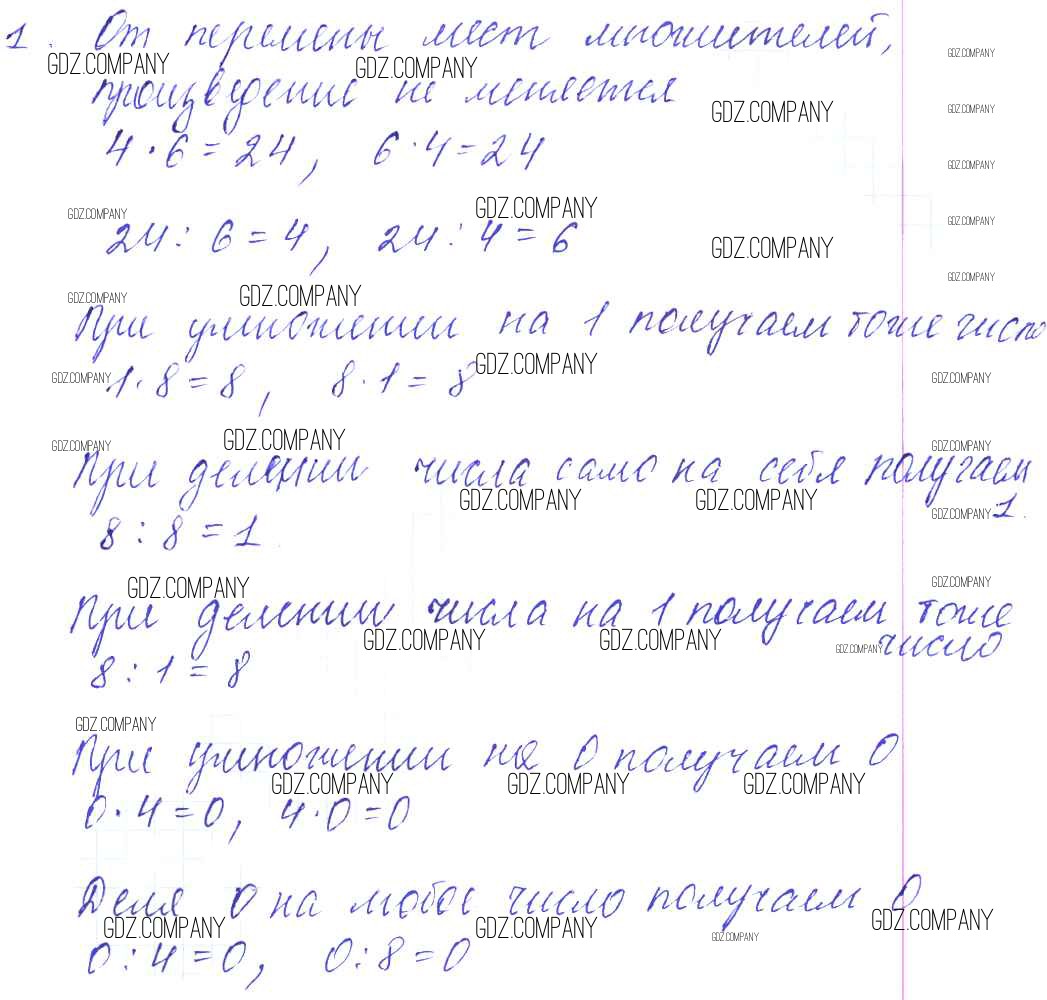 1. От перемены мест множителей,
GDZ.COMPANY GDZ.COMPANY GDZ.COMPANY
произведение не меняется
GDZ.COMPANY GDZ.COMPANY
4 · 6 = 24, 6 · 4 = 24
GDZ.COMPANY
GDZ.COMPANY GDZ.COMPANY GDZ.COMPANY
24 : 6 = 4, 24 : 4 = 6
GDZ.COMPANY
GDZ.COMPANY
GDZ.COMPANY GDZ.COMPANY
При умножении на 1 получаем тоже число
GDZ.COMPANY
GDZ.COMPANY 1 · 8 = 8, 8 · 1 = 8 GDZ.COMPANY
GDZ.COMPANY GDZ.COMPANY GDZ.COMPANY
При делении числа само на себя получаем
GDZ.COMPANY GDZ.COMPANY GDZ.COMPANY 1.
8 : 8 = 1
GDZ.COMPANY GDZ.COMPANY
При делении числа на 1 получаем тоже
GDZ.COMPANY GDZ.COMPANY GDZ.COMPANY число
8 : 1 = 8
GDZ.COMPANY
При умножении на 0 получаем 0
GDZ.COMPANY GDZ.COMPANY GDZ.COMPANY
0 · 4 = 0, 4 · 0 = 0
Деля 0 на любое число получаем 0
GDZ.COMPANY GDZ.COMPANY GDZ.COMPANY GDZ.COMPANY
0 : 4 = 0, 0 : 8 = 0